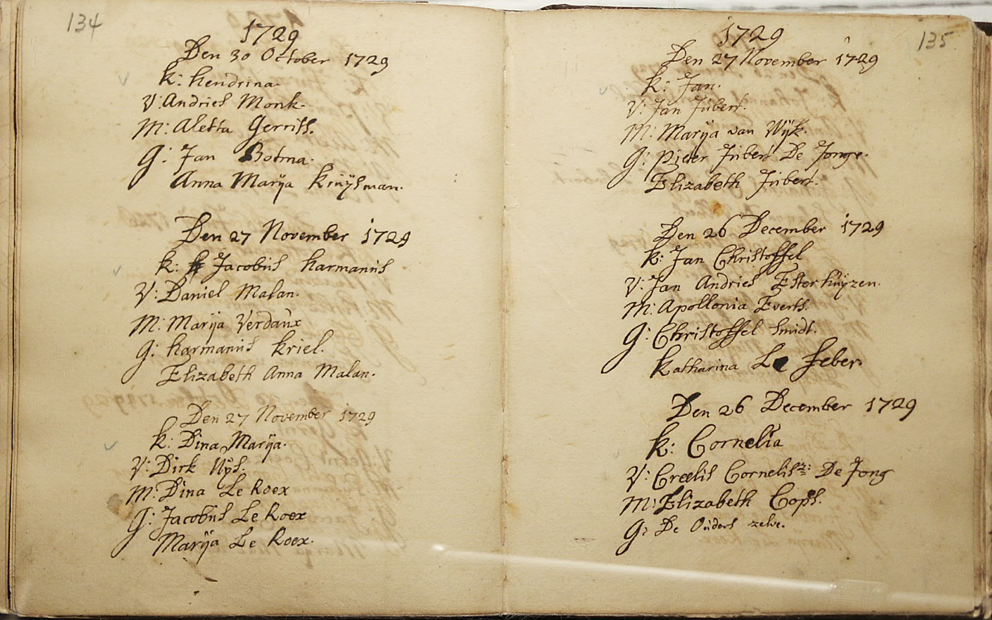 134
1729
Den 30 October 1729
K: Hendrina.
V: Andries Monk.
M: Aletta Gerrits.
G: Jan Botma.
Anna Marija Kruijsman.
Den 27 November 1729
K: Jacobus Harmanus
V: Daniel Malan.
M: Marija Verdaux
G: Harmanus Kriel.
Elizabeth Anna Malan.
Den 27 November 1729
K: Dina Marija.
V: Dirk Uijs.
M: Dina Le Roex
G: Jacobus Le Roex
Marija Le Roex.
135
1729
Den 27 November 1729
K: Jan.
V: Jan Jubert.
M: Marija van Wijk.
G: Pieter Jubert De Jonge.
Elizabeth Jubert.
Den 26 December 1729
K: Jan Christoffel
V: Jan Andries Esterhuijzen.
M: Apollonia Everts.
G: Christoffel Smidt.
Katharina Le Feber.
Den 26 December 1729
K: Cornelia
V: Creelis Cornelisz: De Jong
M: Elizabeth Cops.
G: De Ouders zelve.